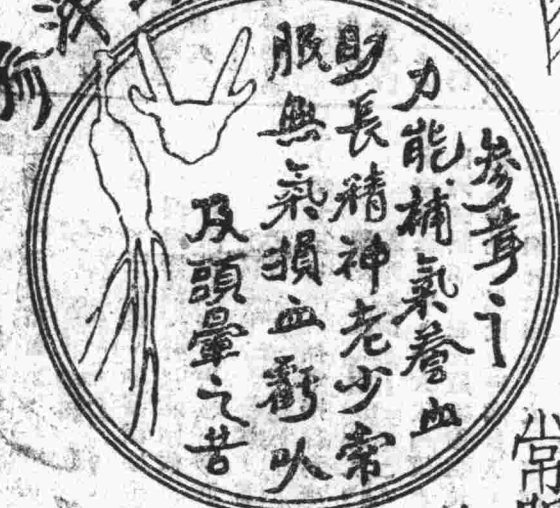 常
參茸之
力能補氣養血
助長精神老少常
服無氣損血虧以
及頭暈之苦